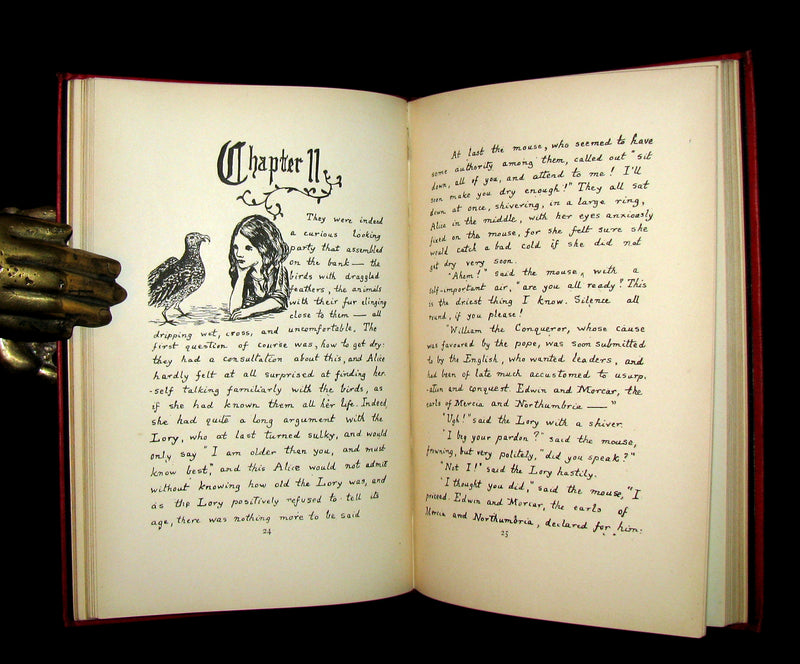 Chapter 11
They were indeed
a curious looking
party that assembled
on the bank — the
birds with draggled
feathers, the animals
with their fur clinging
close to them — all
dripping wet, cross, and uncomfortable. The
first question of course was, how to get dry:
they had a consultation about this, and Alice
hardly felt at all surprised at finding her-
-self talking familiarly with the birds, as
if she had known them all her life. Indeed,
she had quite a long argument with the
Lory, who at last turned sulky, and would
only say "I am older than you, and must
know best," and this Alice would not admit
without knowing how old the Lory was, and
as the Lory positively refused to tell its
age, there was nothing more to be said
24
At last the mouse, who seemed to have
some authority among them, called out "sit
down, all of you, and attend to me! I'll
soon make you dry enough!" They all sat
down at once, shivering, in a large ring,
Alice in the middle, with her eyes anxiously
fixed on the mouse, for she felt sure she
would catch a bad cold if she did not
get dry very soon.
"Ahem!" said the mouse, with a
self-important air, "are you all ready? This
is the driest thing I know. Silence all
round, if you please!
"William the Conqueror, whose cause
was favoured by the pope, was soon submitted
to by the English, who wanted leaders, and
had been of late much accustomed to usurp-
-ation and conquest. Edwin and Morcar, the
earls of Mercia and Northumbria —"
"Ugh!" said the Lory with a shiver.
"I beg your pardon?" said the mouse,
frowning, but very politely, "did you speak?"
"Not I!" said the Lory hastily.
"I thought you did," said the mouse, "I
proceed. Edwin and Morcar, the earls of
Mercia and Northumbria, declared for him:
25